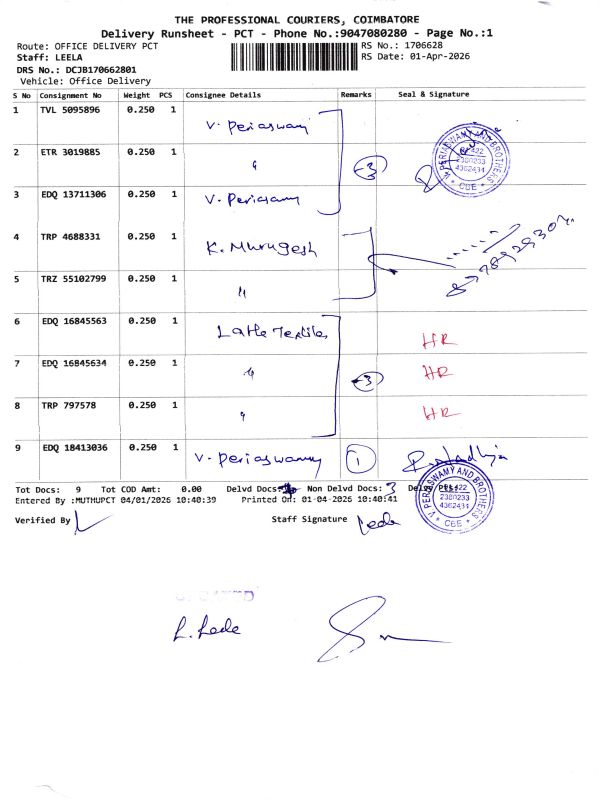 THE PROFESSIONAL COURIERS, COIMBATORE
Delivery Runsheet - PCT - Phone No.:9047080280 - Page No.:1
Route: OFFICE DELIVERY PCT RS No.: 1706628
Staff: LEELA RS Date: 01-Apr-2026
DRS No.: DCJB170662801
Vehicle: Office Delivery
S No Consignment No Weight PCS Consignee Details Remarks Seal & Signature
1 TVL 5095896 0.250 1 V. Periaswamy
2 ETR 3019885 0.250 1 " 3
V PERIASWAMY AND BROTHERS
2380233
4362434
CBE
3 EDQ 13711306 0.250 1 V. Periasamy
4 TRP 4688331 0.250 1 K. Murugesh
5 TRZ 55102799 0.250 1 "
6 EDQ 16845563 0.250 1 Latle Textiles HR
7 EDQ 16845634 0.250 1 " 3 HR
8 TRP 797578 0.250 1 " HR
9 EDQ 18413036 0.250 1 V. Periaswamy 1
Tot Docs: 9 Tot COD Amt: 0.00 Delvd Docs: Non Delvd Docs: 3
Entered By :MUTHUPCT 04/01/2026 10:40:39 Printed On: 01-04-2026 10:40:41
V PERIASWAMY AND BROTHERS
2380233
4362434
CBE
Verified By Staff Signature Leela
L. Leela